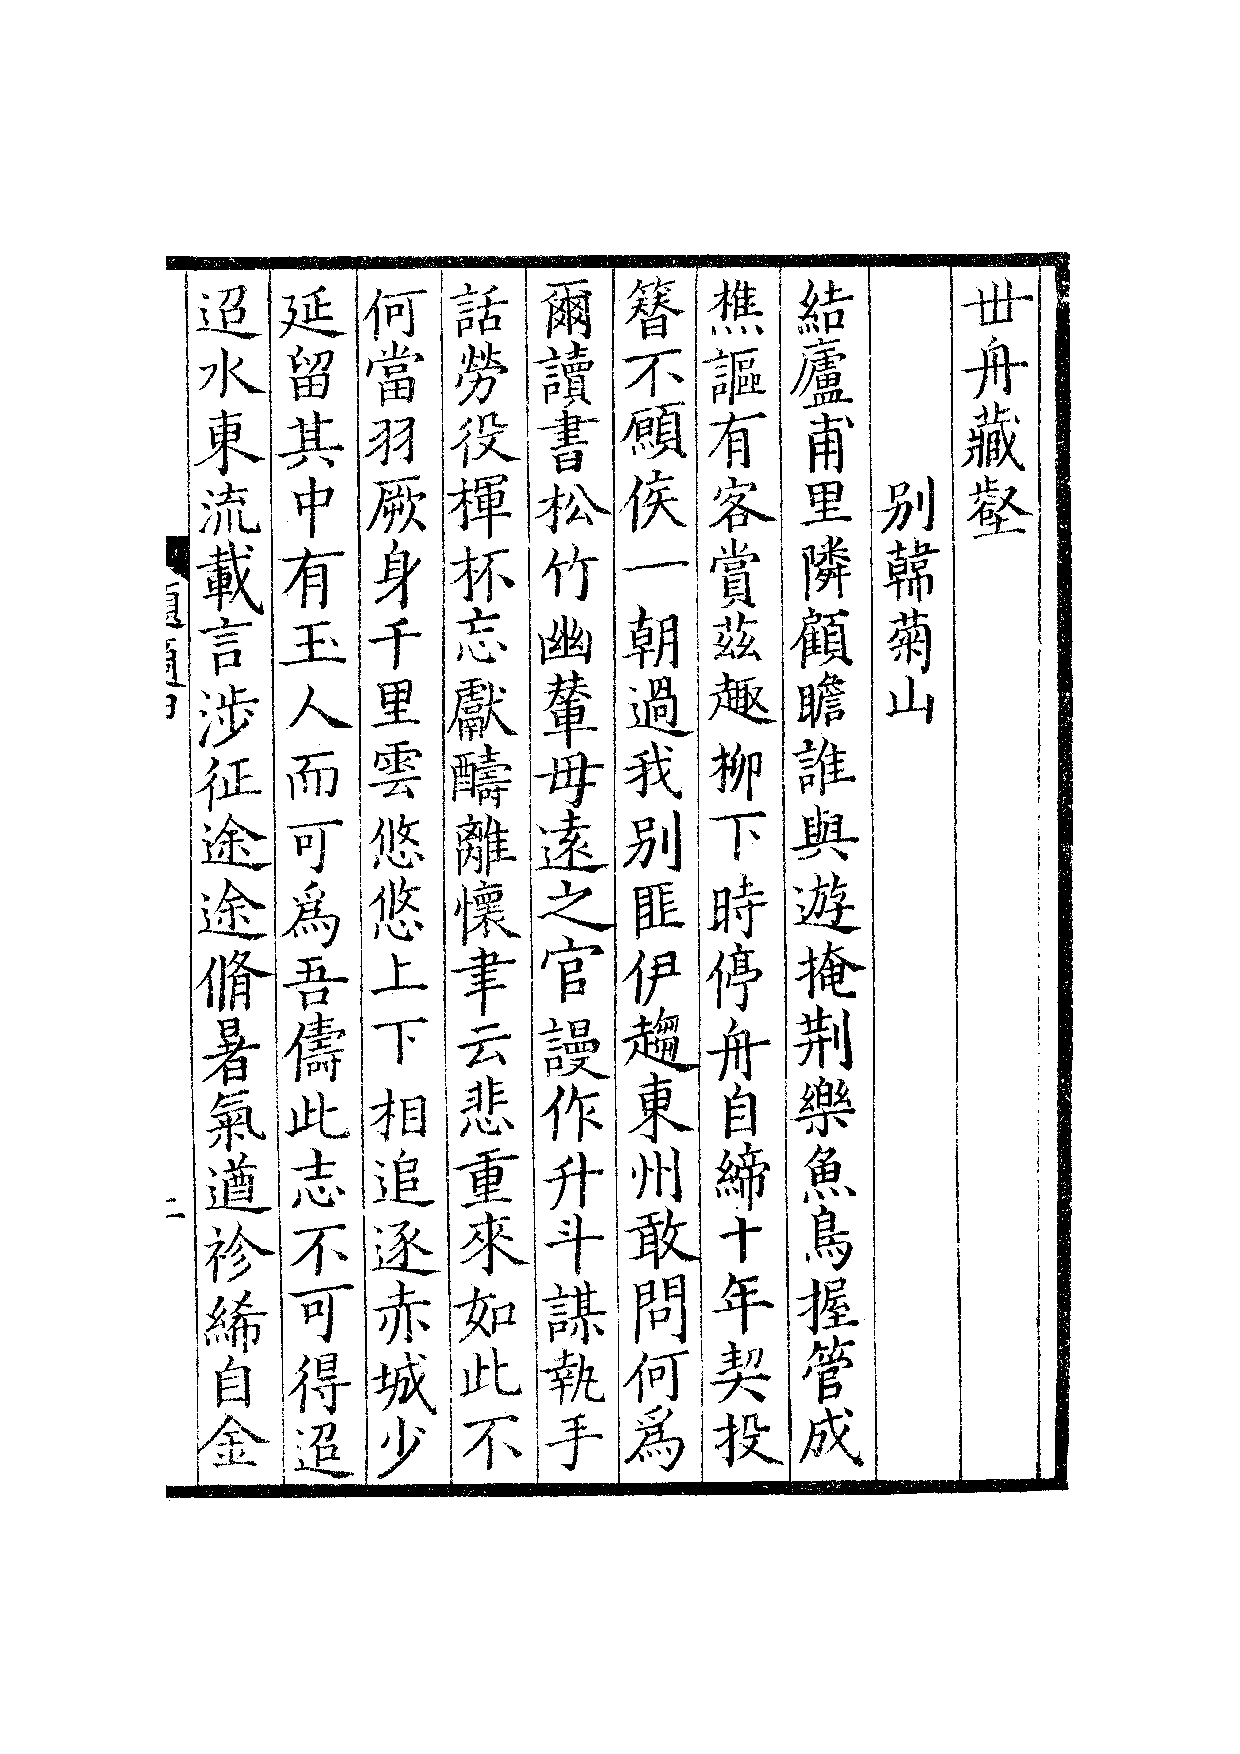 丗舟藏壑
别韓菊山
結廬甫里隣顧瞻誰與遊掩荆樂魚鳥握管成
樵謳有客賞茲趣柳下時停舟自締十年契投
簪不願侯一朝過我别匪伊趨東州敢問何爲
爾讀書松竹幽輦毋遠之官謾作升斗謀執手
話勞役揮杯忘獻醻離懷聿云悲重來如此不
何當羽厥身千里雲悠悠上下相追逐赤城少
延留其中有玉人而可爲吾儔此志不可得迢
迢水東流載言涉征途途脩暑氣遒袗絺自金